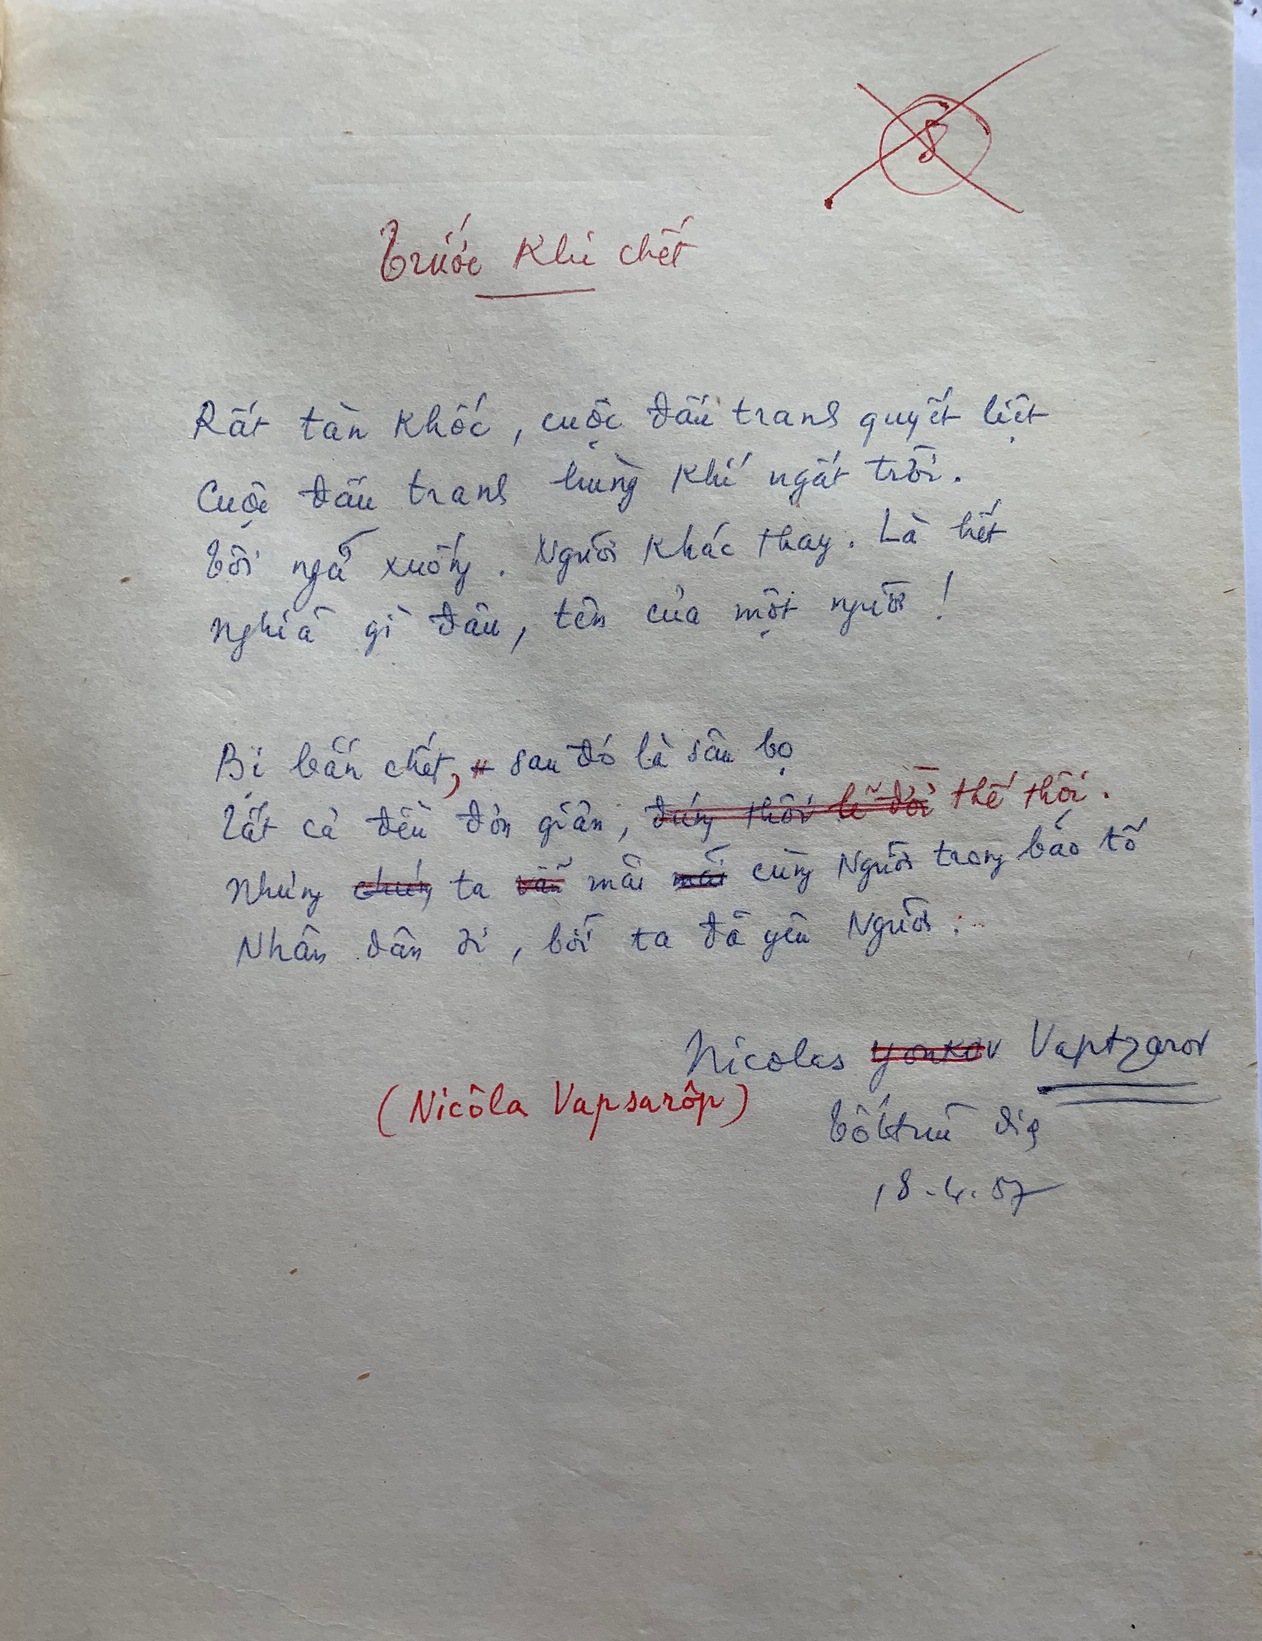 8
Trước khi chết
Rất tàn khốc, cuộc đấu tranh quyết liệt
Cuộc đấu tranh hùng khí ngất trời.
Tôi ngã xuống. Người khác thay. Là hết
nghĩa gì đâu, tên của một người!
Bị bắn chết, sau đó là sâu bọ
Tất cả đều đơn giản, đúng thôi lẽ đời thế thôi.
Nhưng chúng ta vẫn mãi mãi cùng Người trong bão tố
Nhân dân ơi, bởi ta đã yêu Người.
Nicolas Yonkov Vaptzarov
(Nicôla Vapsarôp)
18.4.87